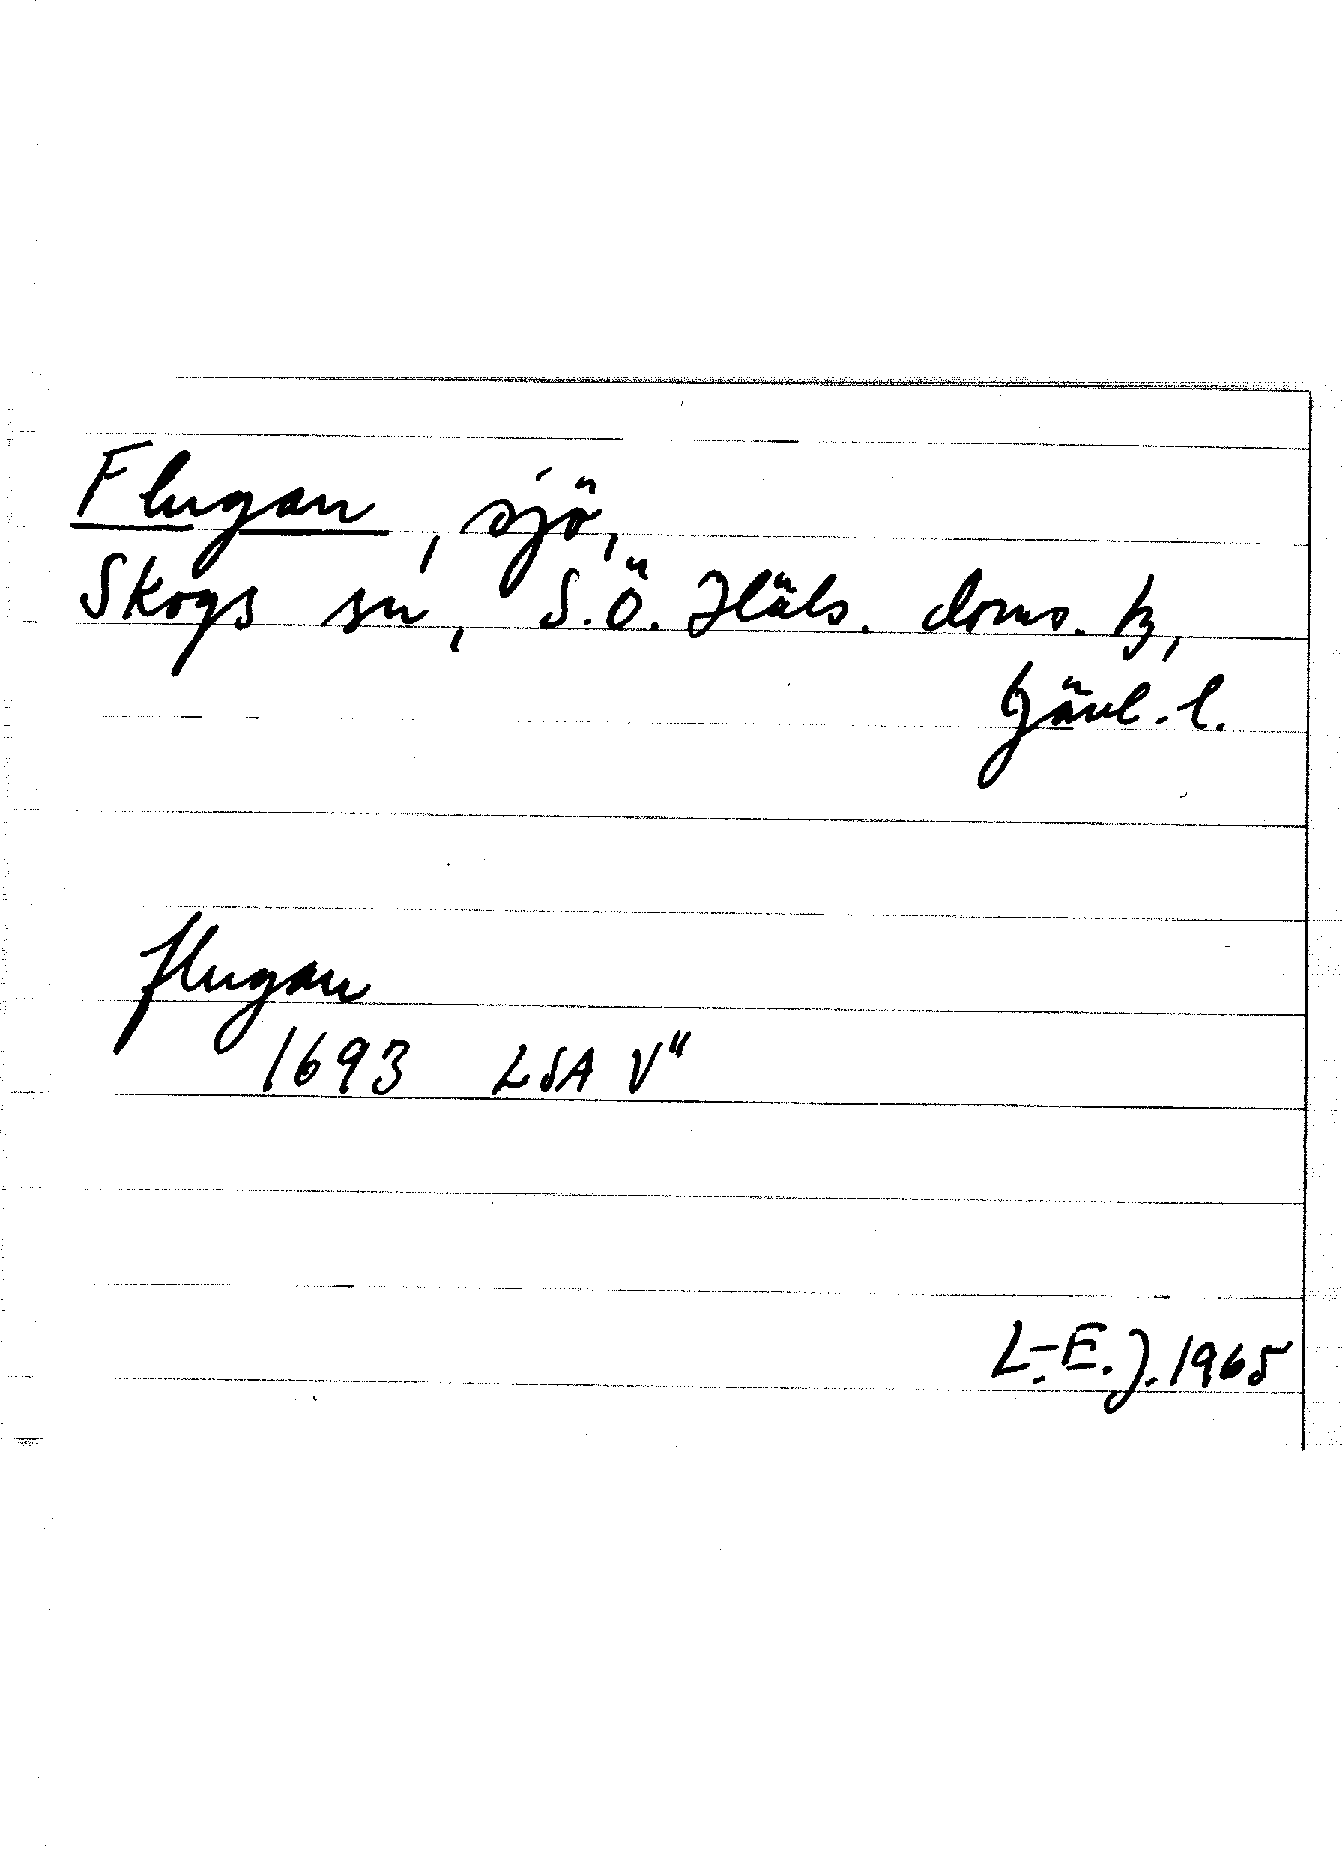 Flugan, sjö,
Skogs sn, S.Ö. Häls. doms. tz,
Gävl. l.
flugan
1693 LSA V"
L.-E. J. 1965